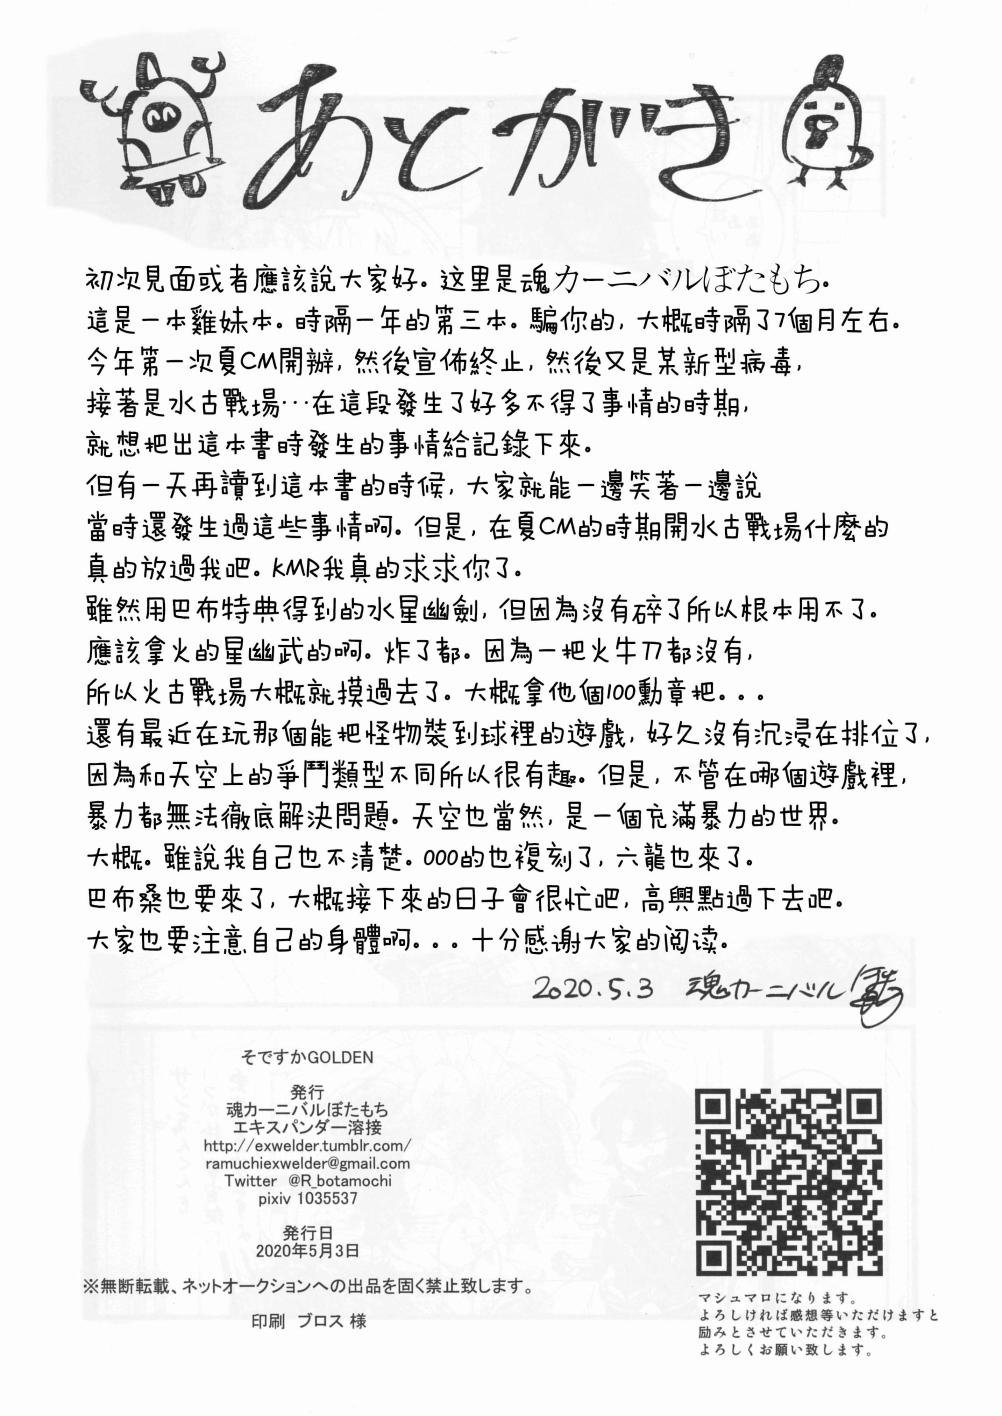 あとがき
初次見面或者應該說大家好。这里是魂カーニバルぼたもち。
這是一本雞妹本。時隔一年的第三本。騙你的,大概時隔了7個月左右。
今年第一次夏CM開辦,然後宣佈終止,然後又是某新型病毒,
接著是水古戰場…在這段發生了好多不得了事情的時期,
就想把出這本書時發生的事情給記錄下來。
但有一天再讀到這本書的時候,大家就能一邊笑著一邊說
當時還發生過這些事情啊。但是,在夏CM的時期開水古戰場什麼的
真的放過我吧。KMR我真的求求你了。
雖然用巴布特典得到的水星幽劍,但因為沒有碎了所以根本用不了。
應該拿火的星幽武的啊。炸了都。因為一把火牛刀都沒有,
所以火古戰場大概就摸過去了。大概拿他個100勳章把。。。
還有最近在玩那個能把怪物裝到球裡的遊戲,好久沒有沉浸在排位了,
因為和天空上的爭鬥類型不同所以很有趣。但是,不管在哪個遊戲裡,
暴力都無法徹底解決問題。天空也當然,是一個充滿暴力的世界。
大概。雖說我自己也不清楚。000的也複刻了,六龍也來了。
巴布桑也要來了,大概接下來的日子會很忙吧,高興點過下去吧。
大家也要注意自己的身體啊。。。十分感谢大家的阅读。
2020.5.3 魂カーニバル
そですかGOLDEN
発行
魂カーニバルぼたもち
エキスパンダー溶接
http://exwelder.tumblr.com/
ramuchiexwelder@gmail.com
Twitter @R_botamochi
pixiv 1035537
発行日
2020年5月3日
※無断転載、ネットオークションへの出品を固く禁止致します。
印刷 ブロス 様
マシュマロになります。
よろしければ感想等いただけますと
励みとさせていただきます。
よろしくお願い致します。